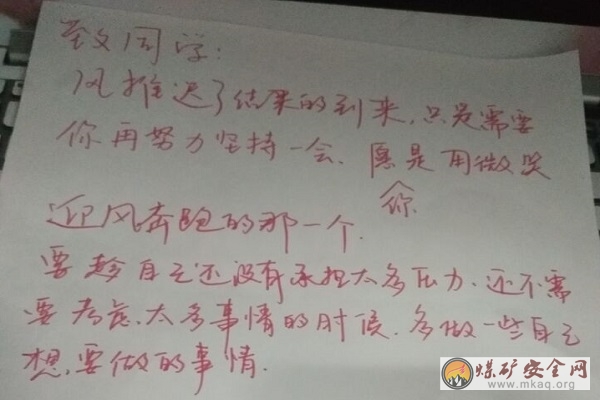 致同学：
风推迟了结果的到来，只是需要
你再努力坚持一会、愿是用微笑
你
迎风奔跑的那一个.
要趁自己还没有承担太多压力、还不需
要考虑太多事情的时候.多做一些自己
想要做的事情.
煤矿安全网
www.mkaq.org